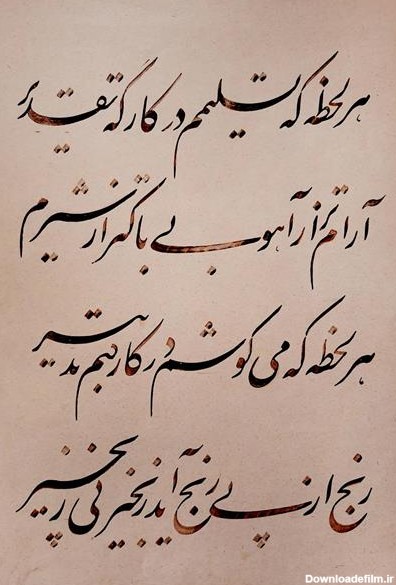 هر لحظه که تسلیمم در کارگه تقدیر
آرام تر از آهو بی باکتر از شیرم
هر لحظه که می کوشم در کار کنم تدبیر
رنج از پی رنج آید زنجیر پی زنجیر
Downloadefilm.ir